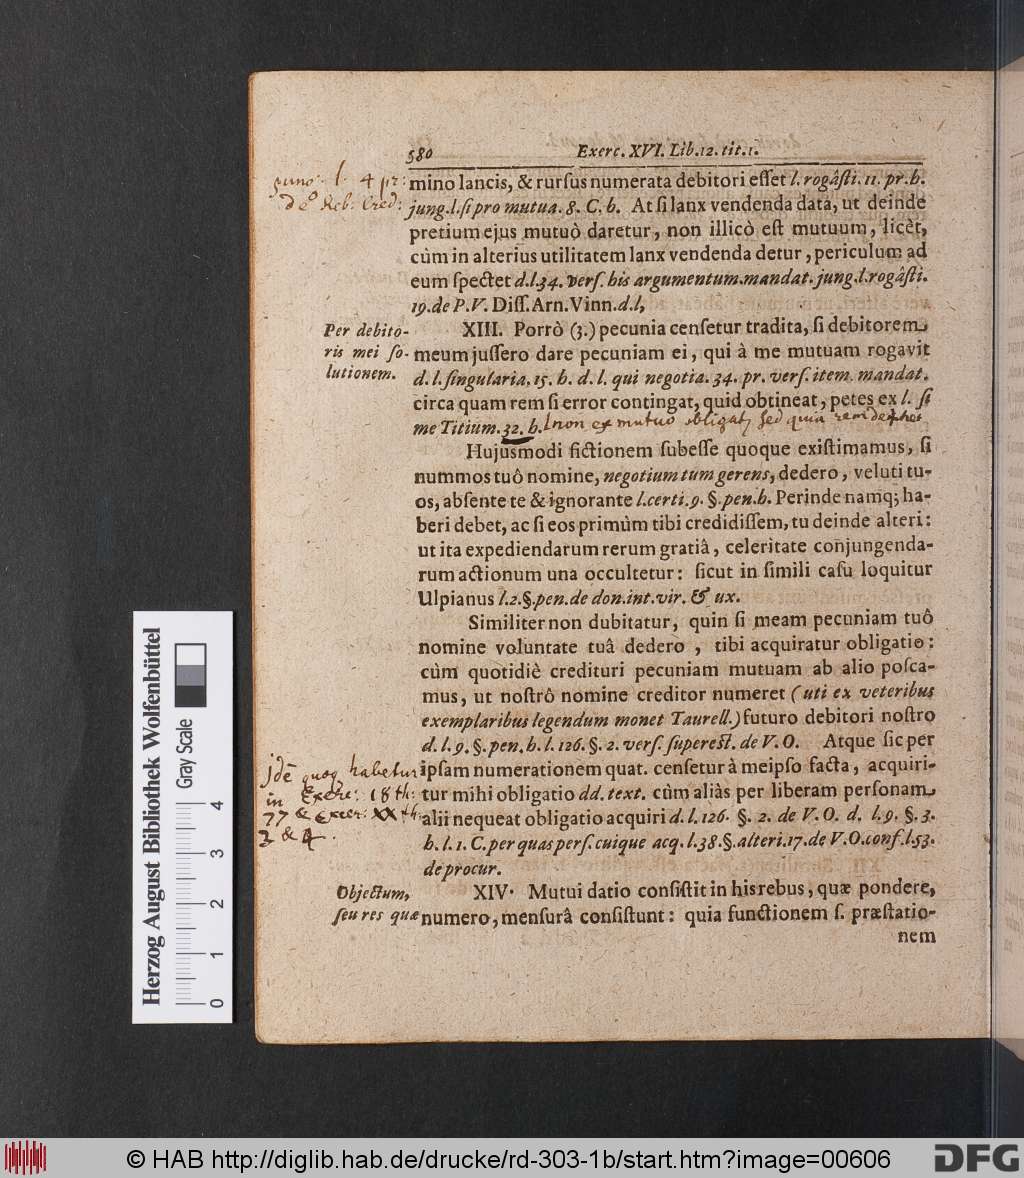 580 Exerc. XVI. Lib. 12. tit. 1.
l. 4 pr:
mino lancis, & rurſus numerata debitori eſſet l. rogâſti. 11. pr. h.
jung. l. ſi pro mutua. 8. C. h. At ſi lanx vendenda data, ut deinde
pretium ejus mutuò daretur, non illicò eſt mutuum, licèt,
cùm in alterius utilitatem lanx vendenda detur, periculum ad
eum ſpectet d. l. 34. verſ. his argumentum. mandat. jung. l. rogâſti.
19. de P. V. Diſſ. Arn. Vinn. d. l,
Per debito-
ris mei ſo-
lutionem.
XIII. Porrò (3.) pecunia cenſetur tradita, ſi debitorem
meum juſſero dare pecuniam ei, qui à me mutuam rogavit
d. l. ſingularia. 15. h. d. l. qui negotia. 34. pr. verſ. item. mandat.
circa quam rem ſi error contingat, quid obtineat, petes ex l. ſi
me Titium. 32. h. non ex mutuo obligat, sed quia rem
Hujuſmodi fictionem ſubeſſe quoque exiſtimamus, ſi
nummos tuô nomine, negotium tum gerens, dedero, veluti tu-
os, abſente te & ignorante l. certi. 9. §. pen. h. Perinde namq; ha-
beri debet, ac ſi eos primùm tibi credidiſſem, tu deinde alteri:
ut ita expediendarum rerum gratiâ, celeritate conjungenda-
rum actionum una occultetur: ſicut in ſimili caſu loquitur
Ulpianus l. 2. §. pen. de don. int. vir. & ux.
Similiter non dubitatur, quin ſi meam pecuniam tuô
nomine voluntate tuâ dedero, tibi acquiratur obligatio:
cùm quotidiè credituri pecuniam mutuam ab alio poſca-
mus, ut noſtrô nomine creditor numeret (uti ex veteribus
exemplaribus legendum monet Taurell.) futuro debitori noſtro
d. l. 9. §. pen. h. l. 126. §. 2. verſ. ſupereſt. de V. O. Atque ſic per
ipſam numerationem quat. cenſetur à meipſo facta, acquiri-
tur mihi obligatio dd. text. cùm aliàs per liberam perſonam
alii nequeat obligatio acquiri d. l. 126. §. 2. de V. O. d. l. 9. §. 3.
h. l. 1. C. per quas perſ. cuique acq. l. 38. §. alteri. 17. de V. O. conf. l. 53.
de procur.
jdē quoq habetur
in Exerc: 18 th:
77 & Exer: XX th:
3 & 4.
Objectum,
ſeu res quæ
XIV. Mutui datio conſiſtit in his rebus, quæ pondere,
numero, menſurâ conſiſtunt: quia functionem ſ. præſtatio-
nem
Herzog August Bibliothek Wolfenbüttel
Gray Scale
0 1 2 3 4
© HAB http://diglib.hab.de/drucke/rd-303-1b/start.htm?image=00606
DFG